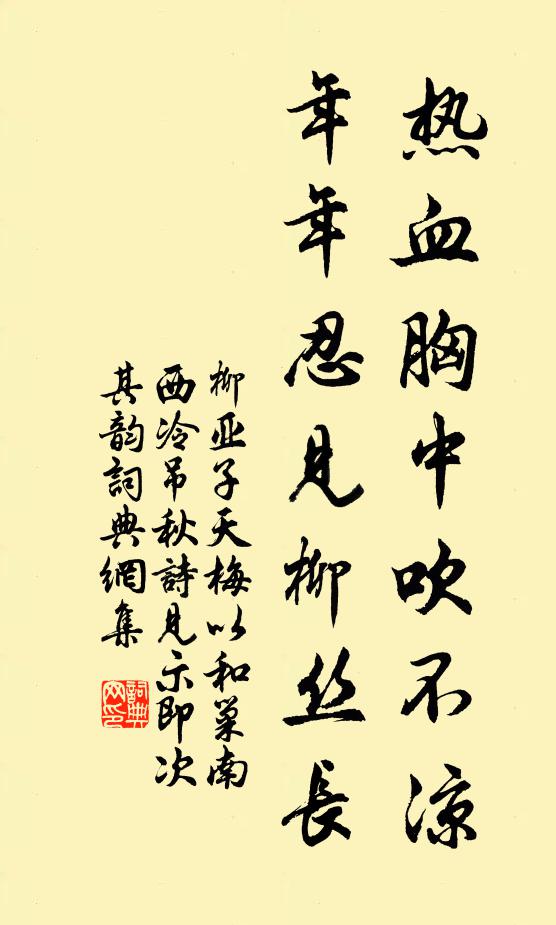 热血胸中吹不凉
年年忍见柳丝長
柳亚子天梅以和巢南
西冷吊秋詩見示即次
其韵詞典網集
詞典网印